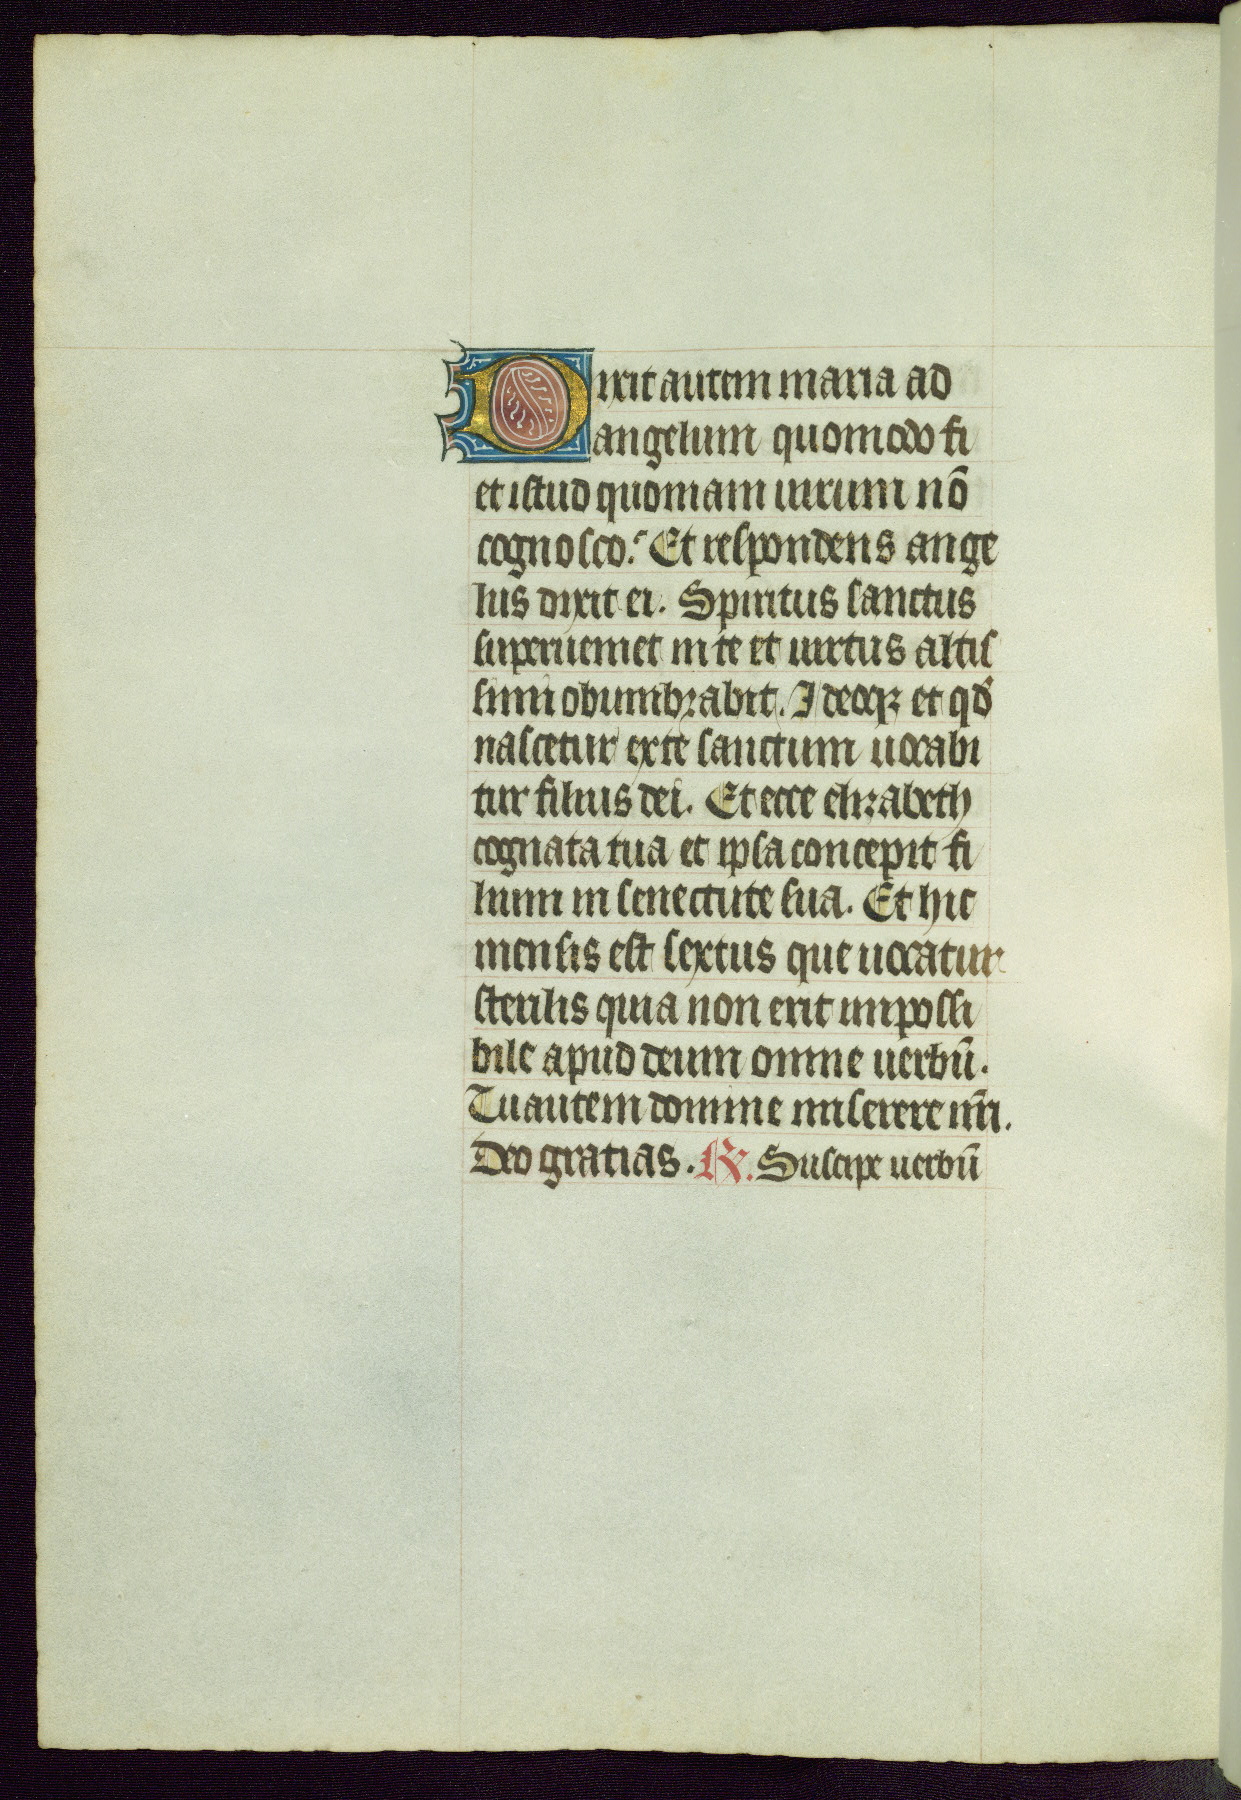 Dixit autem maria ad
angelum quomodo fi
et istud quoniam uirum nō
cognosco. Et respondens ange
lus dixit ei. Spiritus sanctus
superueniet in te et uirtus altis
simi obumbrabit. Ideoqꝫ et qd̓
nascetur ex te sanctum uocabi
tur filius dei. Et ecce elizabeth
cognata tua et ipsa concepit fi
lium in senectute sua. Et hic
mensis est sextus que uocatur
sterilis quia non erit impossi
bile apud deum omne uerbū.
Tu autem domine miserere nr̄i.
Deo gratias. ℟. Suscipe uerbū